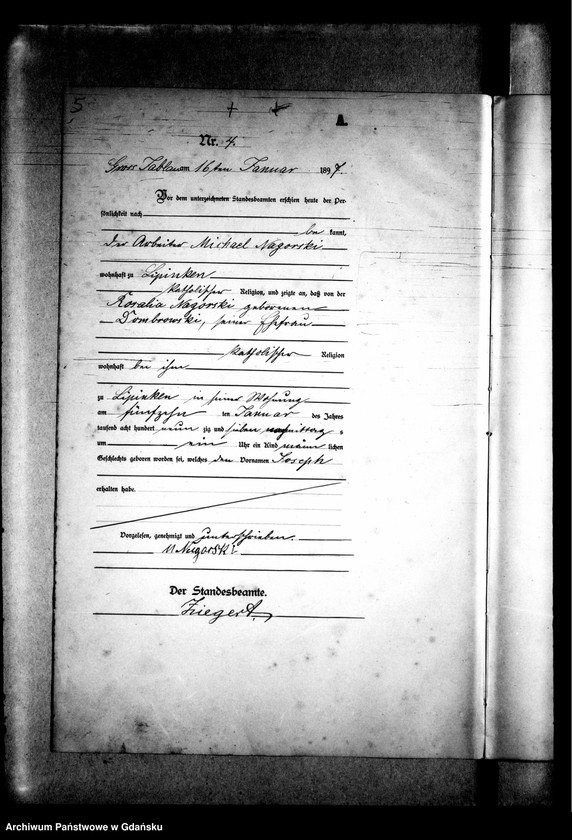 5
A.
Nr. 4.
Gross Jablau am 16ten Januar 1897.
Vor dem unterzeichneten Standesbeamten erschien heute, der Per-
sönlichkeit nach
be kannt,
der Arbeiter Michael Nagorski
wohnhaft zu Lipinken
katholischer Religion, und zeigte an, daß von der
Rosalia Nagorski geborenen
Dombrowski, seiner Ehefrau
katholischer Religion
wohnhaft bei ihm
zu Lipinken in seiner Wohnung
am fünfzehn ten Januar des Jahres
tausend acht hundert neun zig und sieben nachmittags
um ein Uhr ein Kind männ lichen
Geschlechts geboren worden sei, welches den Vornamen Joseph
erhalten habe.
Vorgelesen, genehmigt und unterschrieben.
M Nagorski
Der Standesbeamte.
Ziegert
Archiwum Państwowe w Gdańsku